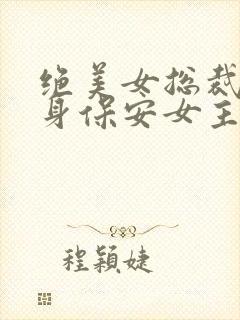 绝美女总裁
身保安女主
程颖婕